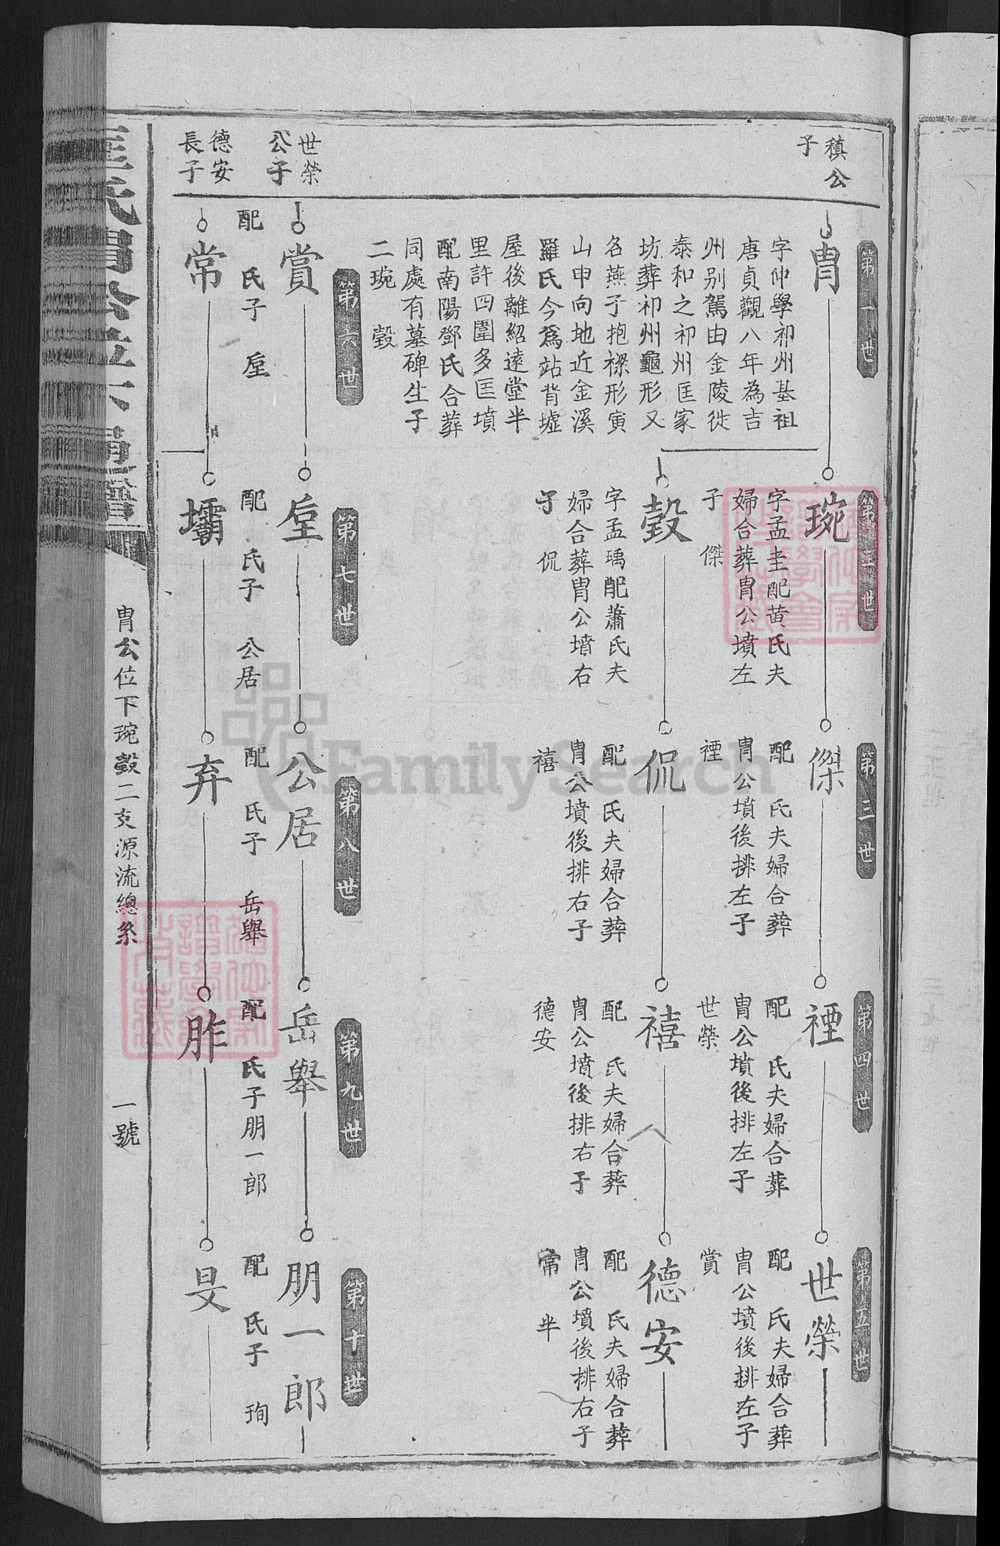 稹公
子
第一世
胄
字仲學祁州基祖
唐貞觀八年為吉
州別駕由金陵徙
泰和之祁州匡家
坊葬祁州龜形又
名燕子抱樑形寅
山申向地近金溪
羅氏今爲站背墟
屋後離紹遠堂半
里許四圍多匡墳
配南陽鄧氏合葬
同處有墓碑生子
二琬 瑴
第二世
琬
字孟圭配黃氏夫
婦合葬胄公墳左
子 傑
瑴
字孟瑀配蕭氏夫
婦合葬胄公墳右
子 侃
第三世
傑
配 氏夫婦合葬
胄公墳後排左子
禋
侃
配 氏夫婦合葬
胄公墳後排右子
禧
第四世
禋
配 氏夫婦合葬
胄公墳後排左子
世榮
禧
配 氏夫婦合葬
胄公墳後排右子
德安
第五世
世榮
配 氏夫婦合葬
胄公墳後排左子
賞
德安
配 氏夫婦合葬
胄公墳後排右子
常 半
世榮
公子
第六世
賞
配 氏子 垕
德安
長子
常
第七世
垕
配 氏子 公居
壩
第八世
公居
配 氏子 岳舉
弃
第九世
岳舉
配 氏子朋一郎
胙
第十世
朋一郎
配 氏子 珣
旻
胄公位下琬瑴二支源流總系
一號
FamilySearch